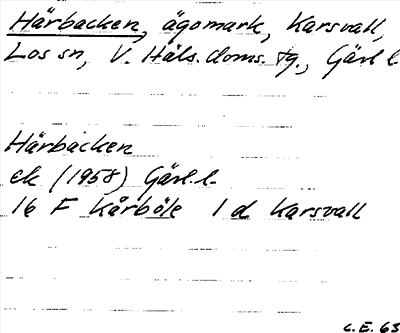 Härbacken, ägomark, Karsvall,
Los sn, V. Häls. doms. tg., Gävl l.
Härbacken
ek (1958) Gävl. l.
16 F Kårböle 1 d Karsvall
C.E. 63